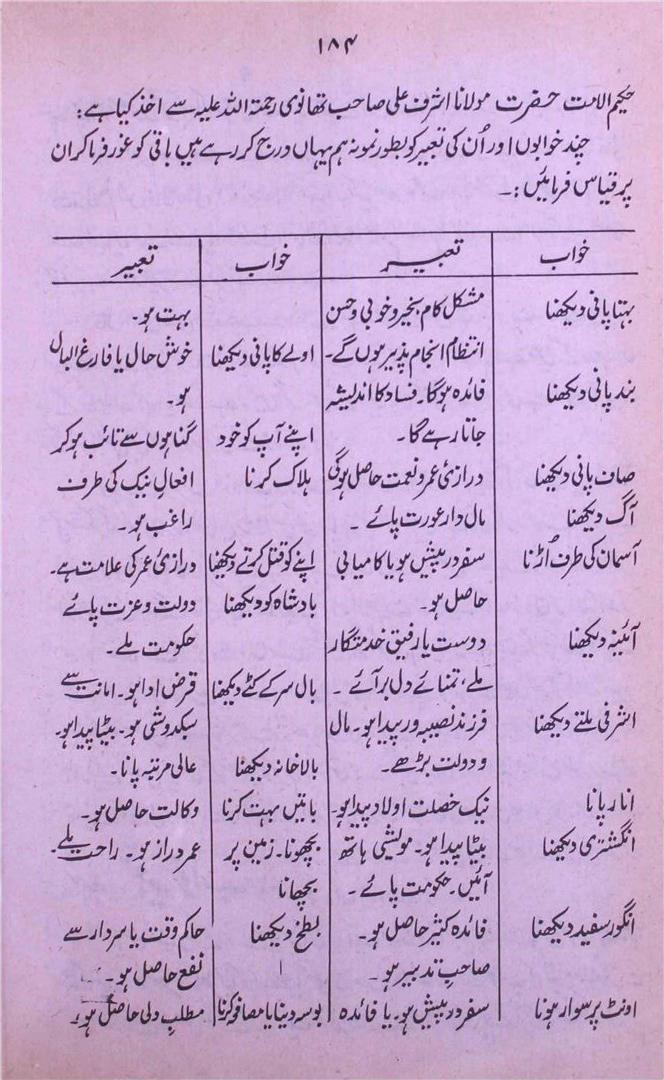 ۱۸۴
حکیم الامت حضرت مولانا اشرف علی صاحب تھانوی رحمۃ اللہ علیہ سے اخذ کیا ہے:
چند خوابوں اور اُن کی تعبیر کو بطور نمونہ ہم یہاں درج کر رہے ہیں باقی کو غور فرما کر ان
پر قیاس فرمائیں:۔
خواب تعبیر خواب تعبیر
بہتا پانی دیکھنا مشکل کام بخیر و خوبی و حسن بہت ہو۔
انتظام انجام پذیر ہوں گے۔ اولے کا پانی دیکھنا خوش حال یا فارغ البال
بند پانی دیکھنا فائدہ ہوگا۔ فساد کا اندیشہ ہو۔
جاتا رہے گا۔ اپنے آپ کو خود گناہوں سے تائب ہو کر
صاف پانی دیکھنا درازئ عمر و نعمت حاصل ہوگی ہلاک کرنا افعالِ نیک کی طرف
آگ دیکھنا مال دار عورت پائے۔ راغب ہو۔
آسمان کی طرف اُڑنا سفر درپیش ہو یا کامیابی اپنے کو قتل کرتے دیکھنا درازئ عمر کی علامت ہے۔
حاصل ہو۔ بادشاہ کو دیکھنا دولت و عزت پائے
آئینہ دیکھنا دوست یا رفیق خدمتگار حکومت ملے۔
ملے، تمنائے دل بر آئے۔ بال سر کے کٹے دیکھنا قرض ادا ہو۔ امانت سے
اشرفی ملتے دیکھنا فرزند نصیبہ ور پیدا ہو۔ مال سبکدوشی ہو۔ بیٹا پیدا ہو۔
و دولت بڑھے۔ بالا خانہ دیکھنا عالی مرتبہ پانا۔
انار پانا نیک خصلت اولاد پیدا ہو۔ باتیں بہت کرنا وکالت حاصل ہو۔
انگشتری دیکھنا بیٹا پیدا ہو۔ مویشی ہاتھ بچھونا۔ زمین پر عمر دراز ہو۔ راحت ملے۔
آئیں۔ حکومت پائے۔ بچھانا
انگور سفید دیکھنا فائدہ کثیر حاصل ہو۔ بطخ دیکھنا حاکم وقت یا سردار سے
صاحبِ تدبیر ہو۔ نفع حاصل ہو۔
اونٹ پر سوار ہونا سفر درپیش ہو۔ یا فائدہ بوسہ دینا یا مصافحہ کرنا مطلب دلی حاصل ہو۔